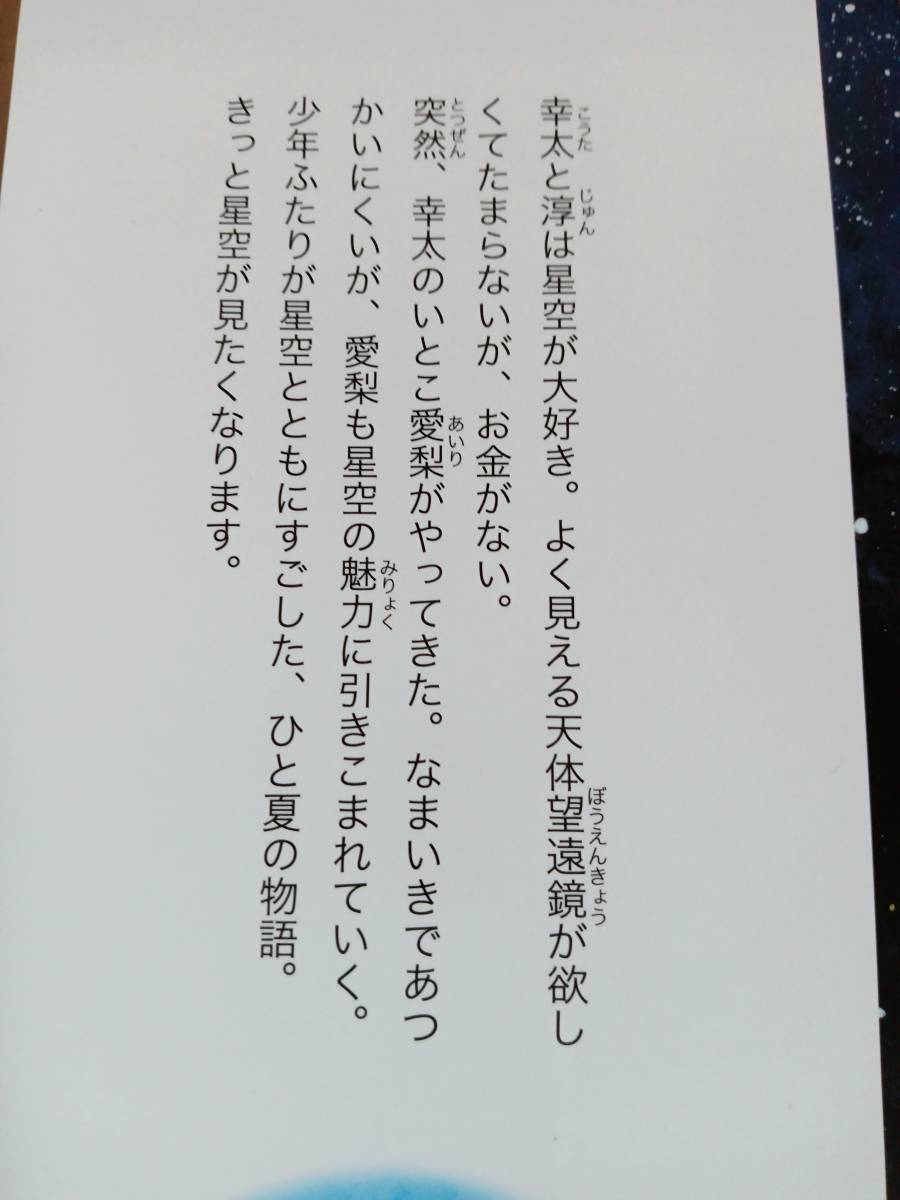 幸太と淳は星空が大好き。よく見える天体望遠鏡が欲し
くてたまらないが、お金がない。
突然、幸太のいとこ愛梨がやってきた。なまいきであつ
かいにくいが、愛梨も星空の魅力に引きこまれていく。
少年ふたりが星空とともにすごした、ひと夏の物語。
きっと星空が見たくなります。
こうた
じゅん
ぼうえんきょう
とつぜん
あいり
みりょく